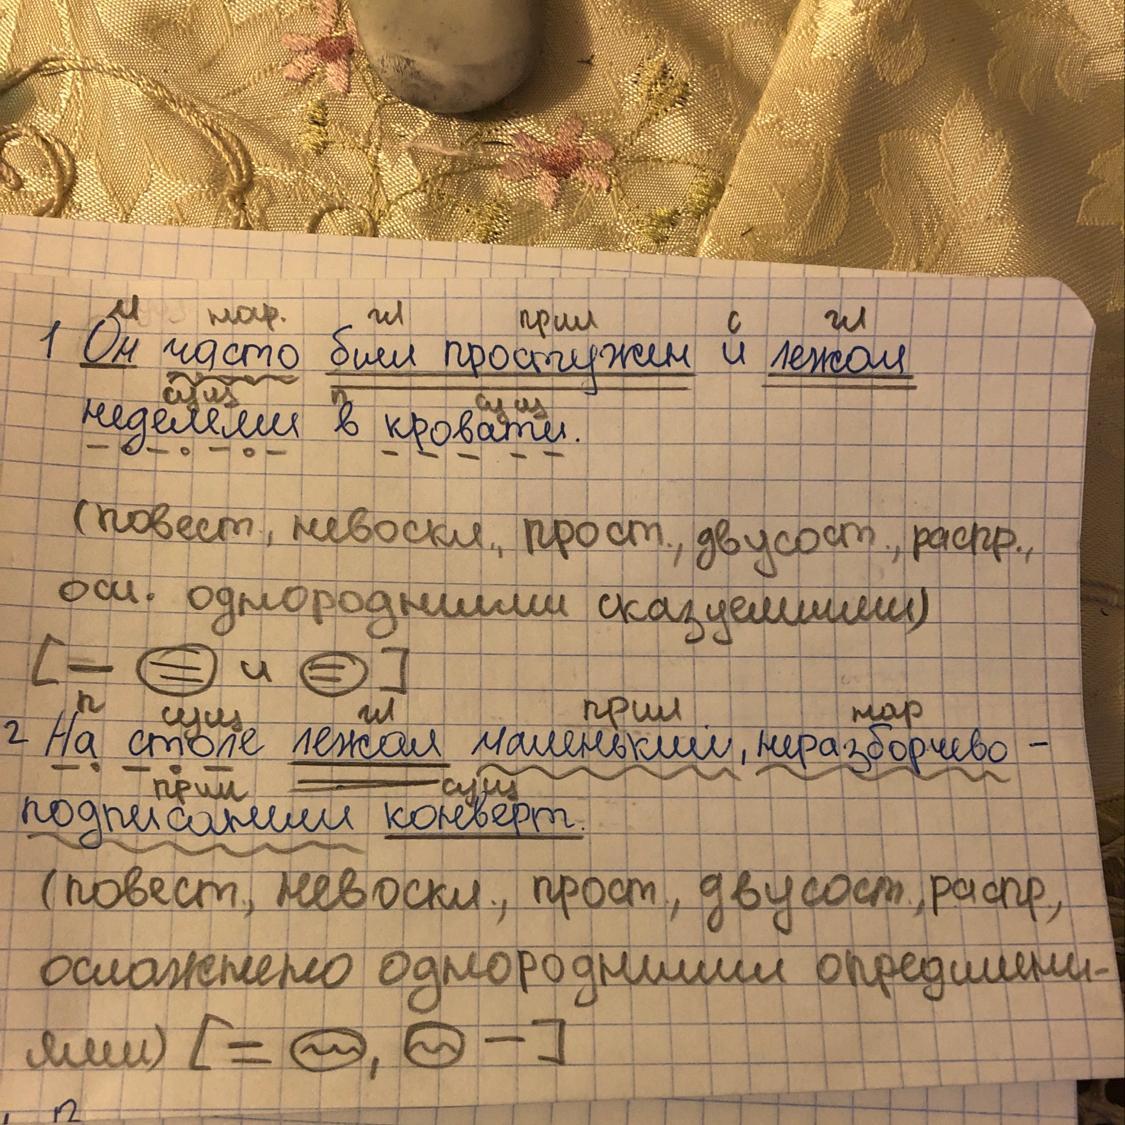 м нар. гл прил с гл
1 Он часто был простужен и лежал
сущ п сущ
неделями в кровати.
(повест., невоскл., прост., двусост., распр.,
осл. однородными сказуемыми)
[– = и =]
п сущ гл прил нар
2 На столе лежал маленький, неразборчево-
прил сущ
подписанный конверт.
(повест., невоскл., прост., двусост., распр.,
осложнено однородными определени-
ями) [= ~, ~ –]
п